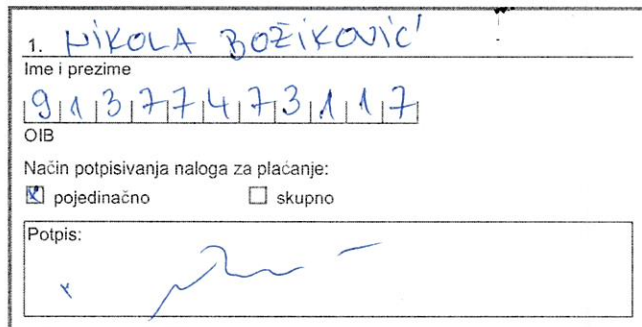 1. NIKOLA BOŽIKOVIĆ
Ime i prezime
91377473117
OIB
Način potpisivanja naloga za plaćanje:
☒ pojedinačno ☐ skupno
Potpis: